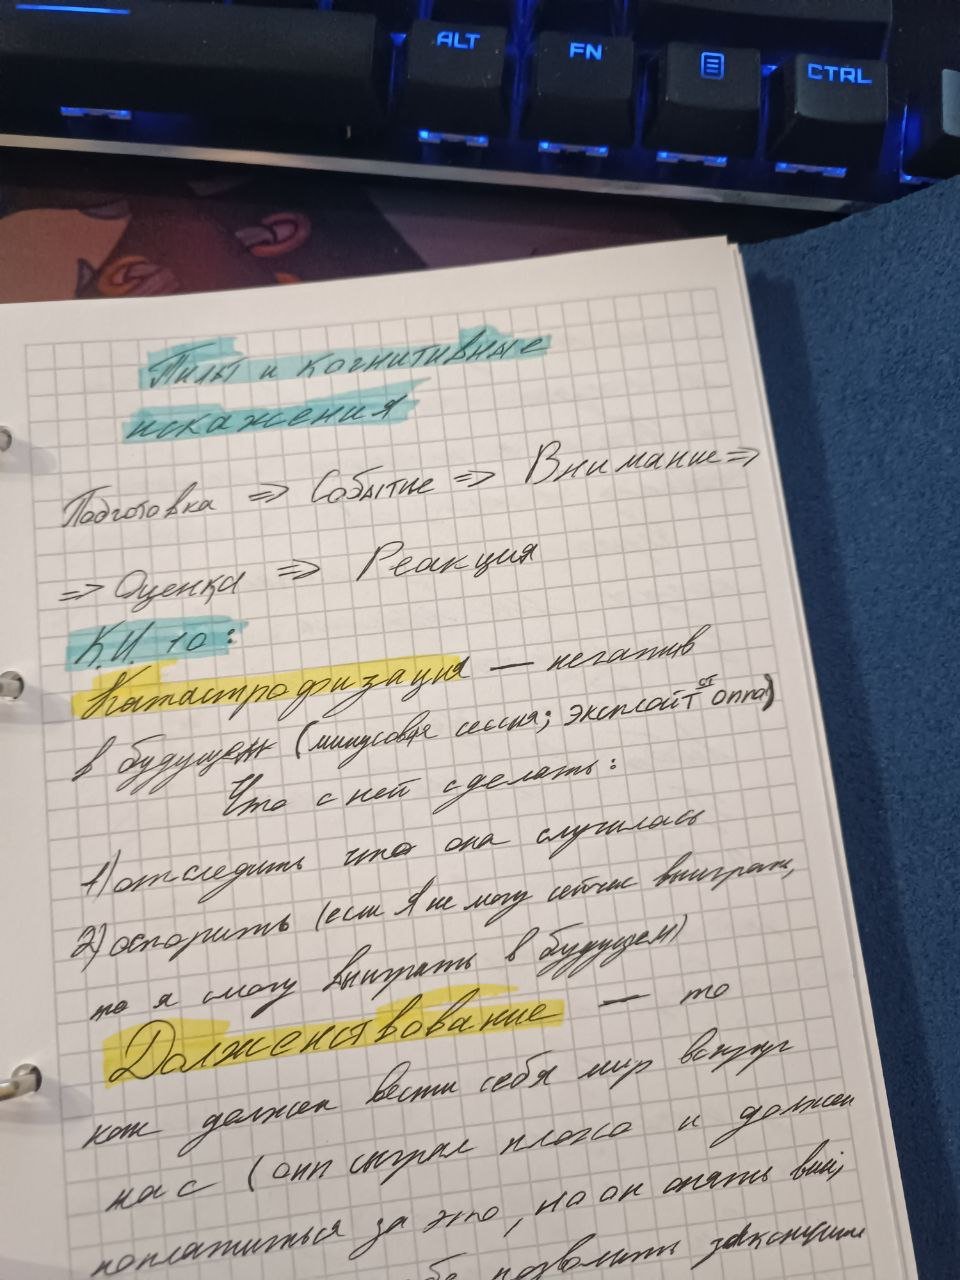 ALT FN CTRL
Тильт и когнитивные
искажения
Подготовка => Событие => Внимание =>
=> Оценка => Реакция
К.И. 10:
Катастрофизация — негатив
в будущем (минусовая сессия; эксплойт от оппа)
Что с ней сделать:
1) отследить что она случилась
2) оспорить (если я не могу сейчас выиграть,
то я смогу выиграть в будущем)
Долженствование — то
как должен вести себя мир вокруг
нас (опп сыграл плохо и должен
поплатиться за это, но он опять
позволить закончить